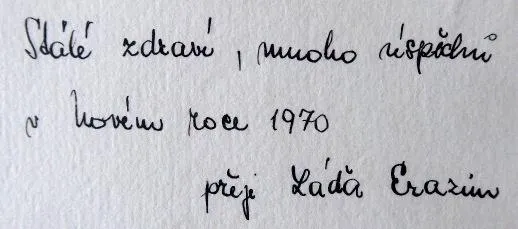 Stálé zdraví, mnoho úspěchů
v novém roce 1970
přeji Láďa Erazim